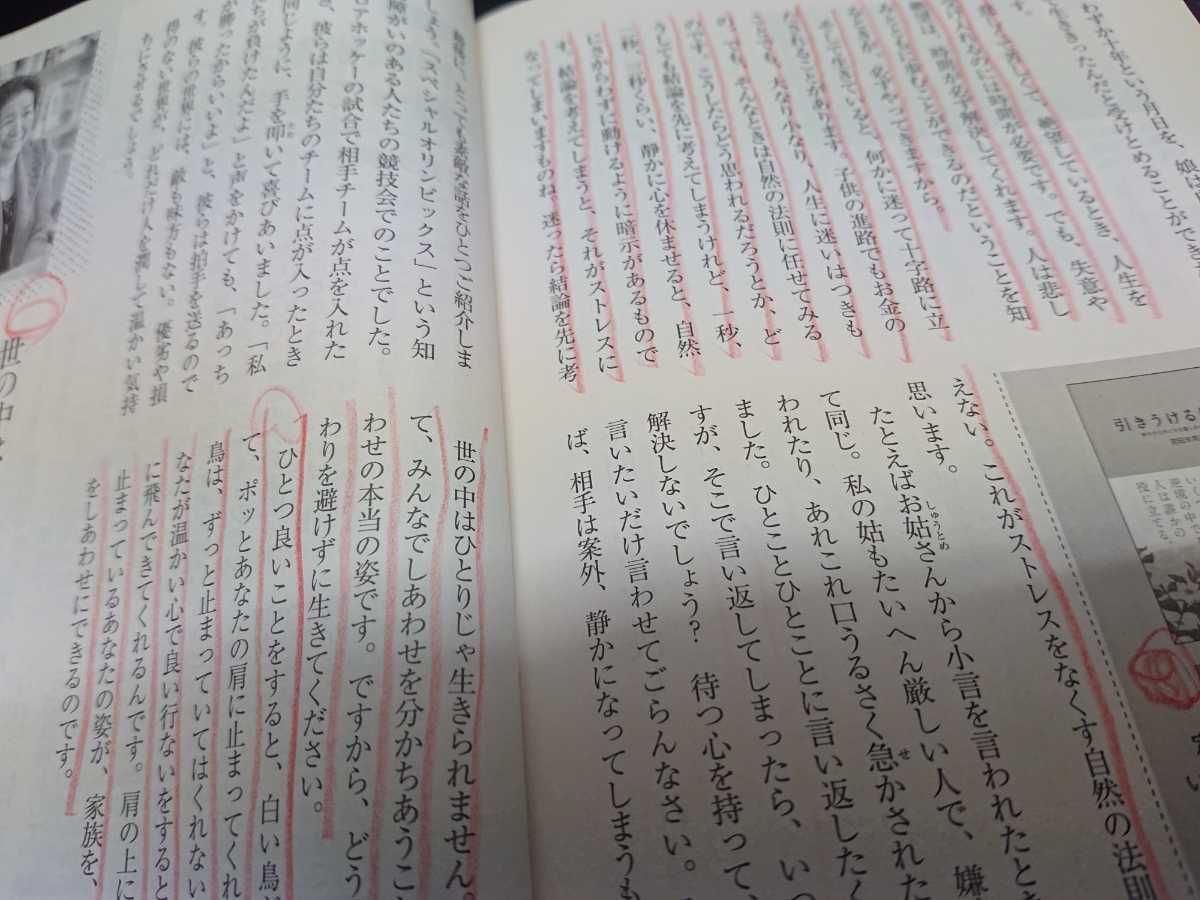 わずか十年という月日を、娘は
生ききったんだと受けとめることができ
す。
絶望しているとき、人生を
には時間が必要です。でも、失意や
時間が必ず解決してくれます。人は悲し
ことができるのだということを知
必ずやってきますから。
して生きていると、何かに迷って十字路に立
たされることがあります。子供の進路でもお金の
ことでも、大なり小なり、人生に迷いはつきも
の。でも、そんなときは自然の法則に任せてみる
のです。こうしたらどう思われるだろうとか、ど
うしても結論を先に考えてしまうけれど、一秒、
二秒、三秒くらい、静かに心を休ませると、自然
にさからわずに動けるように暗示があるもので
す。結論を考えてしまうと、それがストレスに
なってしまいますものね。迷ったら結論を先に考
えない。これがストレスをなくす自然の法則
思います。
たとえばお姑さんから小言を言われたとき
しゅうとめ
て同じ。私の姑もたいへん厳しい人で、嫌
われたり、あれこれ口うるさく急かされた
せ
ました。ひとことひとことに言い返したく
すが、そこで言い返してしまったら、いつ
解決しないでしょう? 待つ心を持って、
言いたいだけ言わせてごらんなさい。
ば、相手は案外、静かになってしまうも
引きうける
逆境の中
人は誰かの
役に立てる
とても素敵な話をひとつご紹介しま
しょう。「スペシャルオリンピックス」という知
障がいのある人たちの競技会でのことでした。
ロアホッケーの試合で相手チームが点を入れた
き、彼らは自分たちのチームに点が入ったとき
同じように、手を叩いて喜びあいました。「私
たちが負けたんだよ」と声をかけても、「あっち
が勝ったからいいよ」と、彼らは拍手を送るので
す。彼らの世界には、敵も味方もない。優劣や損
得のない世界が、どれだけ人を潤して温かい気持
ちにさせるでしょう。
世の中はひとりじゃ生きられません。
て、みんなでしあわせを分かちあうこ
わせの本当の姿です。ですから、どう
わりを避けずに生きてください。
ひとつ良いことをすると、白い鳥が
て、ポッとあなたの肩に止まってくれ
鳥は、ずっと止まっていてはくれない
なたが温かい心で良い行ないをすると
に飛んできてくれるんです。肩の上に
止まっているあなたの姿が、家族を、
をしあわせにできるのです。
世の中